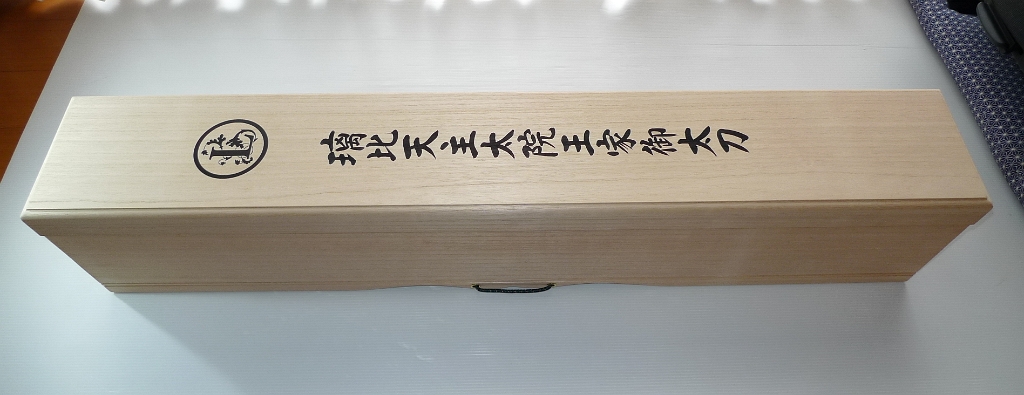 璃比天主太院王家御太刀